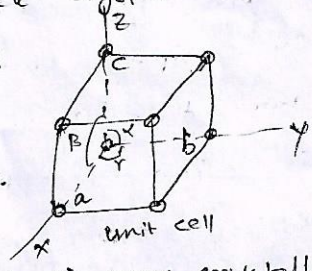 Z
C
B α
γ
b Y
a
X
unit cell